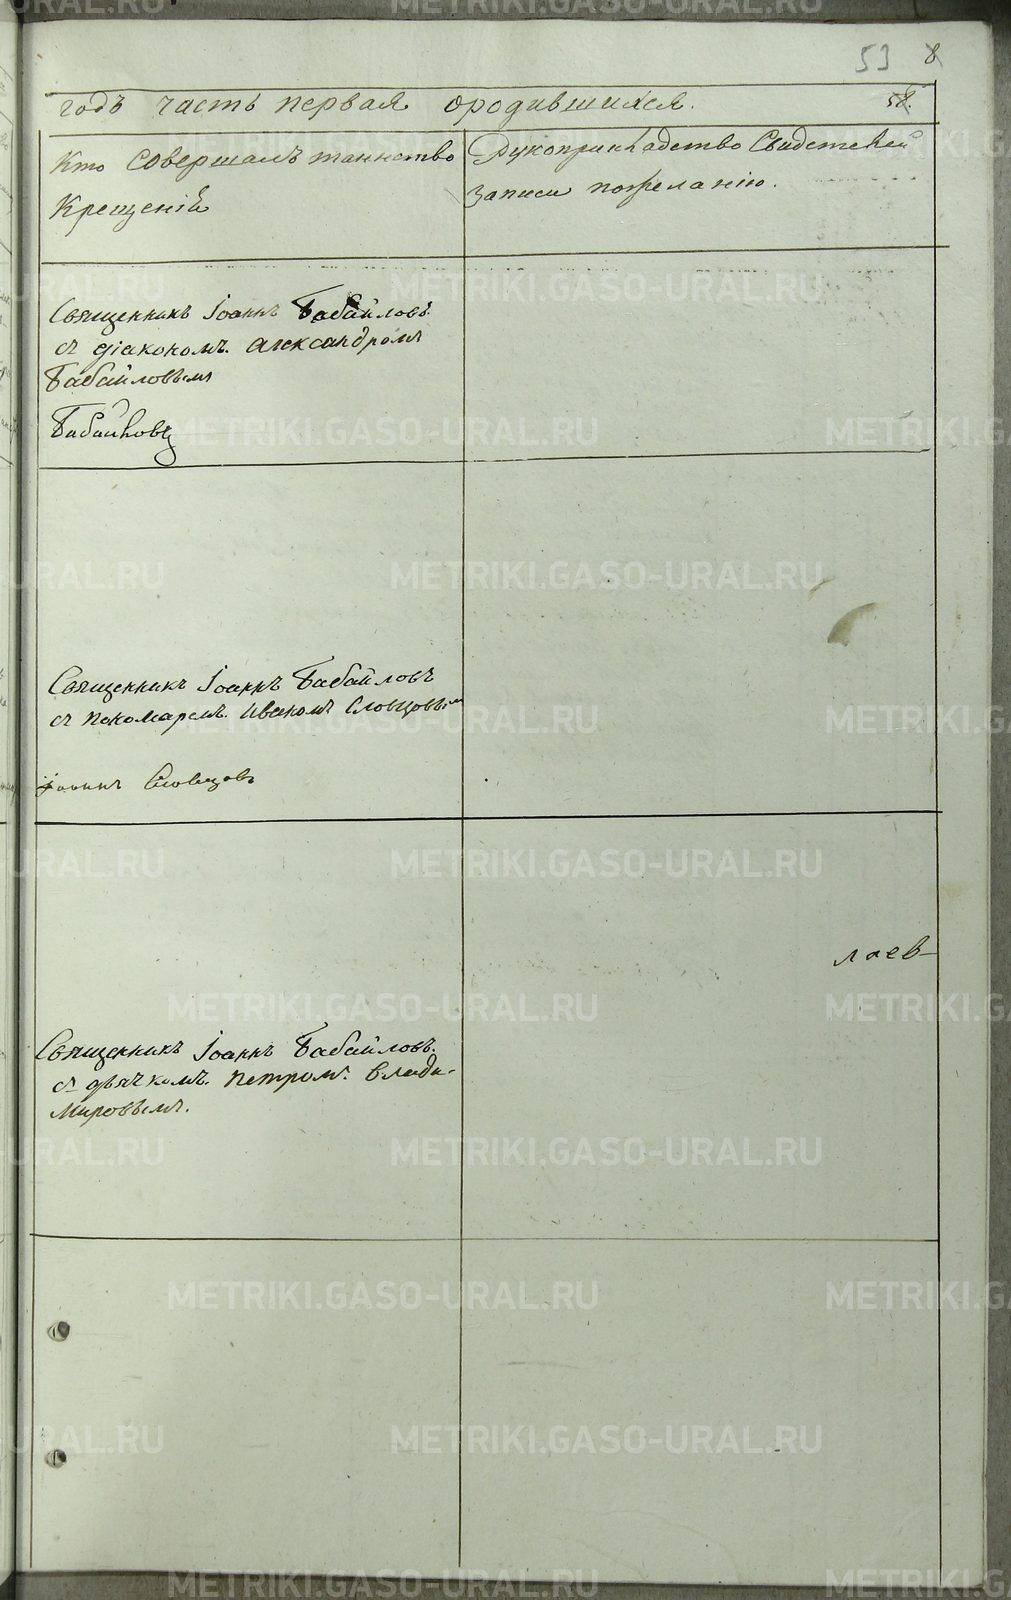 53 8
годъ часть первая ородившихся. 58.
Кто Совершалъ таинство
Крещенія
Рукоприкладство Свидетелей
Записи пожеланію.
Священникъ Іоаннъ Бабайловъ
съ діакономъ Александромъ
Бабайловымъ
Бабайловъ
Священникъ Іоаннъ Бабайловъ
съ пономаремъ Иваномъ Словцовым
Іоаннъ Словцовъ
лаев
Священникъ Іоаннъ Бабайловъ
съ дьячкомъ Петромъ Влади-
мировымъ.
METRIKI.GASO-URAL.RU